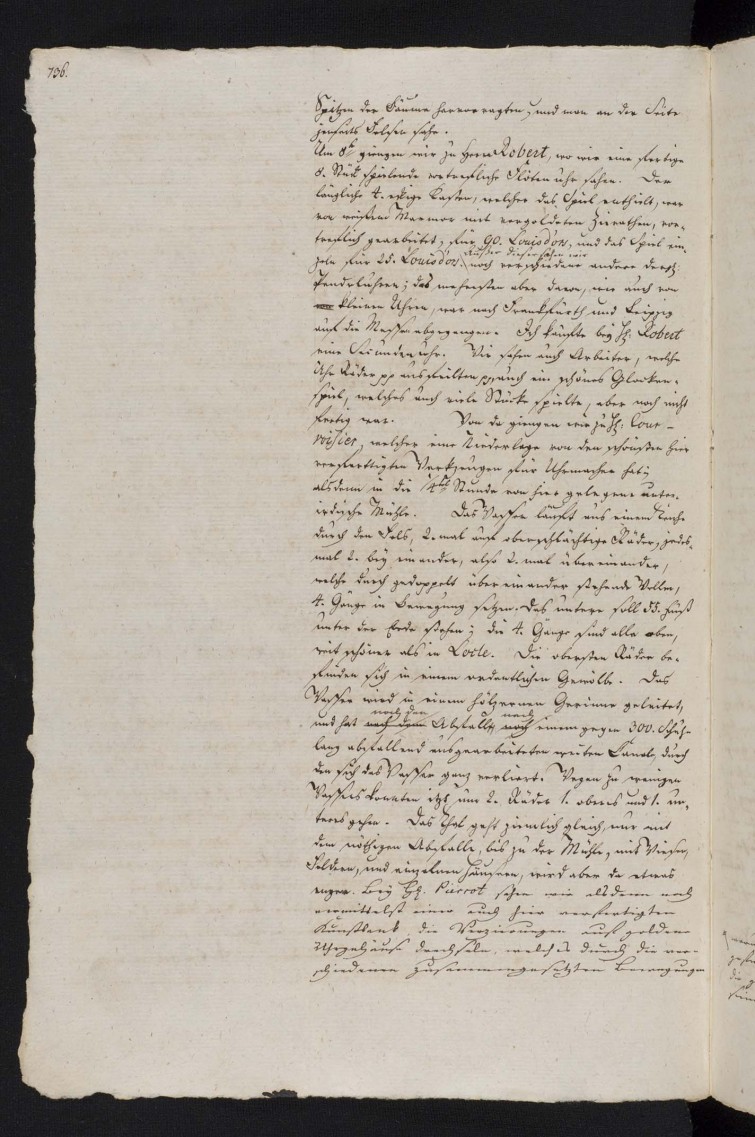 136.
Spitzen der Bäume hervorragten, und man an der Seite
jenseits Felsen sahe.
Um 8h giengen wir zu Herrn Robert, wo wir eine fertige
8. Stück spielende vortrefliche Flötenuhr sahen. Der
längliche 4. eckige Kasten, welcher das Spiel enthielt, war
von weissem Marmor mit vergoldeten Zierathen, vor-
treflich gearbeitet, für 90. Louisdors, und das Spiel ein-
zeln für 25. Louisdors. Außer diesen sahen wir noch verschiedene andere dergl:
Pendeluhren; das mehreste aber davon, wie auch von
kleinen Uhren, war nach Franckfurth und Leipzig
auf die Messe abgegangen. Ich kaufte bey H: Robert
eine Secundenuhr. Wir sahen auch Arbeiter, welche
Uhr Räder pp ausfeilten, auch ein schönes Glocken-
spiel, welches auch viele Stücke spielte, aber noch nicht
fertig war. Von da giengen wir zu H: Cour-
voisier, welcher eine Niederlage von den schönsten hier
verfertigten Werkzeugen für Uhrmacher hat;
alsdenn in die Stunde von hier gelegene unter-
irdische Mühle. Das Wasser läuft aus einem Teiche
durch den Fels, 2. mal auf oberschlächtige Räder, jedes-
mal 2. bey einander, also 2. mal übereinander,
welche durch gedoppelt übereinander stehende Wellen,
4. Gänge in Bewegung setzen. Das untere soll 55. Fuß
unter der Erde stehen; die 4. Gänge sind alle oben,
weit schöner als in Locle. Die obersten Räder be-
finden sich in einem ordentlichen Gewölbe. Das
Wasser wird in einem hölzernen Gerinne geleitet,
und hat nach dem Abfalle noch einen gegen 300. Schuh
lang abfallend ausgearbeiteten weiten Canal, durch
den sich das Wasser ganz verliert. Wegen zu wenigen
Wassers konnten itzt nur 2. Räder 1. oberes und 1. un-
teres gehen. Das Thal geht ziemlich gleich, nur mit
dem nöthigen Abfalle, bis zu der Mühle, mit Wiesen,
Feldern, und einzelnen Häusern, wird aber da etwas
enger. Bey H: Pierrot sahen wir alsdenn noch
vermittelst einer auch hier verfertigten
Kunstbank, die Verzierungen auf goldene
Uhrgehäuse drechseln, welches durch die ver-
schiedenen zusammengesetzten Bewegungen